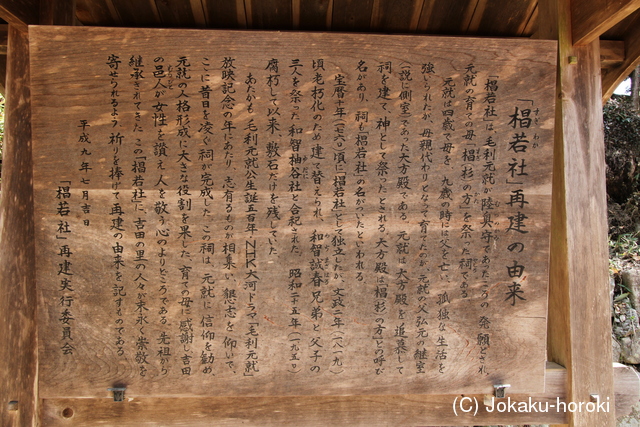 「椙若社」再建の由来
すぎ わか
「椙若社」は、毛利元就が陸奥守であったころの発願とされ、
元就の育ての母「椙杉の方」を祭った祠である。
元就は四歳で母を、九歳の時に父を亡い、孤独な生活を
強いられたが、母親代わりとなって育てたのが、元就の父弘元の継室
(一説に側室)であった大方殿である。元就は大方殿を追慕して
祠を建て、神として祭ったとされる。大方殿は「椙杉の方」との呼び
名があり、祠も「椙若社」の名がついたといわれる。
宝暦十年(一七六〇)頃に「椙若社」として独立したが、文政二年(一八一九)
頃老朽化のため建て替えられ、和智誠春兄弟と父子の
三人を祭った和智神谷社と合祀された。昭和二十五年(一九五〇)
腐朽して以来、敷石だけを残していた。
あたかも、毛利元就公生誕五百年、NHK大河ドラマ「毛利元就」
放映記念の年にあたり、志有るものが相集い、懇志を仰いで、
ここに昔日を凌ぐ祠が完成した。この祠は、元就に信仰を勧め、
元就の人格形成に大きな役割を果した、育ての母に感謝し吉田
の邑人が女性を讃え、人を敬う心のよりどころである。先祖から
継承されてきた、この「椙若社」に、吉田の里の人々が末永く崇敬を
寄せられるよう、祈りを捧げて再建の由来を記すものである。
平成九年七月吉日
「椙若社」再建実行委員会
(C) Jokaku-horoki